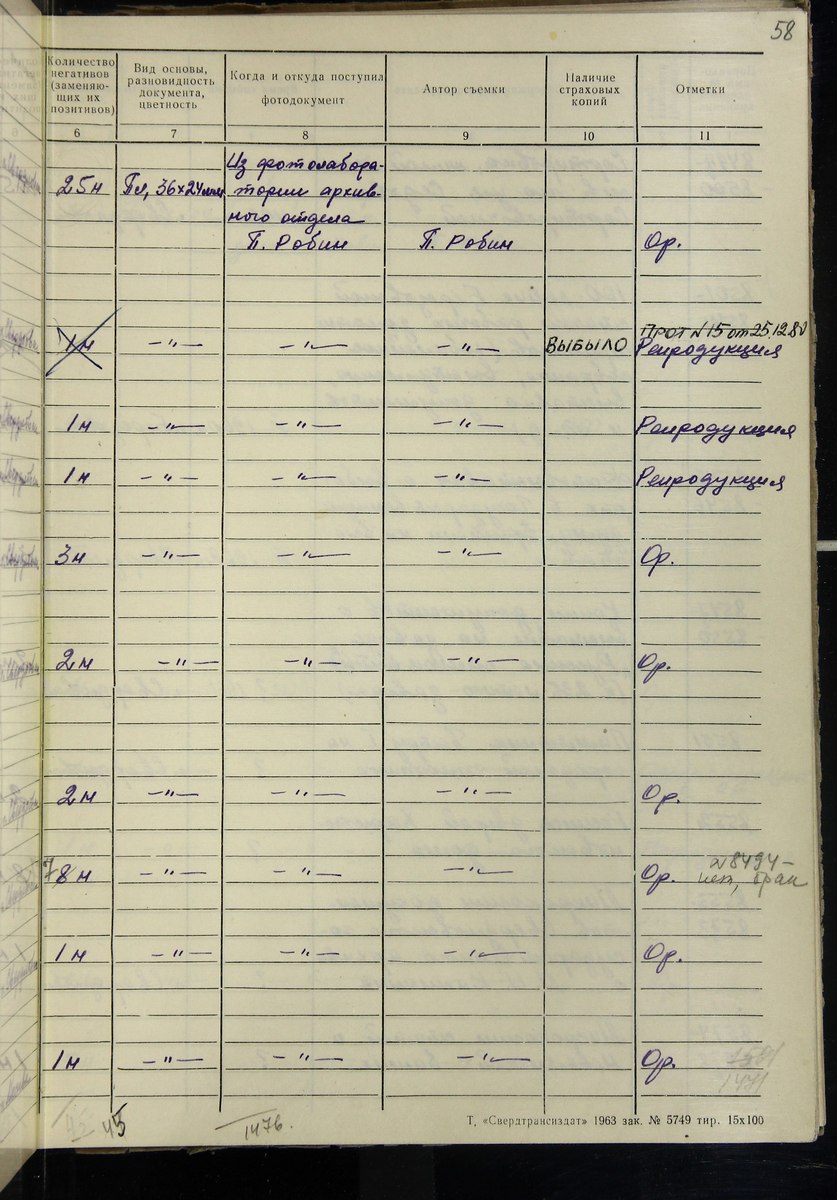 58
Количество негативов (заменяющих их позитивов) Вид основы, разновидность документа, цветность Когда и откуда поступил фотодокумент Автор съемки Наличие страховых копий Отметки
6 7 8 9 10 11
Из фотолабора-
25н Пл, 36×24мм тории архив-
ного отдела
П. Робин П. Робин Ор.
ПРОТ №15 от 25.12.80
1н –"– –"– –"– ВЫБЫЛО Репродукция
1н –"– –"– –"– Репродукция
1н –"– –"– –"– Репродукция
3н –"– –"– –"– Ор.
2н –"– –"– –"– Ор.
2н –"– –"– –"– Ор.
№8494–
7 8н –"– –"– –"– Ор. нет, брак
1н –"– –"– –"– Ор.
1н –"– –"– –"– Ор.
45 1476.
Т. «Свердтрансиздат» 1963 зак. № 5749 тир. 15х100